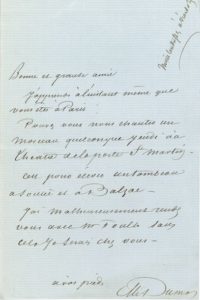 Bonne et grande amie
J'apprends à l'instant même que
vous êtes à Paris
Pouvez vous nous chanter un
morceau quelconque jeudi à
Théatre de la porte St Martin
pour élever un tombeau
à Soulié et à Balzac –
J'ai malheureusement rendez
vous avec Mr Fould sans
cela je serais chez vous –
à vos pieds
Alex Dumas